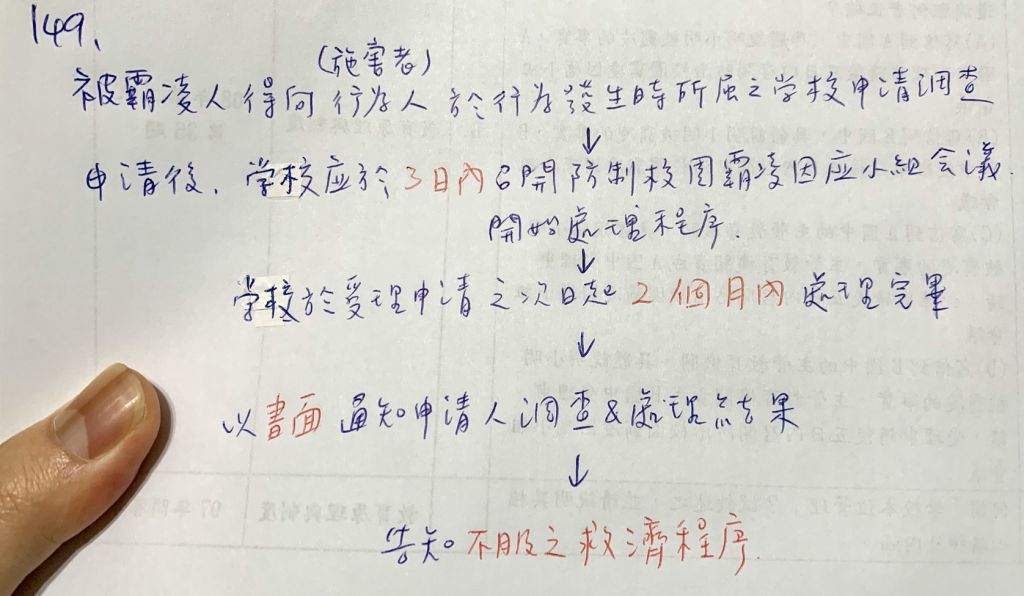 149.
(施害者)
被霸凌人得向行为人於行为發生時所屆之学校申請調查
↓
申請後，学校应於3日內召開防制校園霸凌因应小組会議.
開始處理程序.
↓
学校於受理申請之次日起2個月內處理完畢
↓
以書面通知申請人調查&處理結果
↓
告知不服之救濟程序.